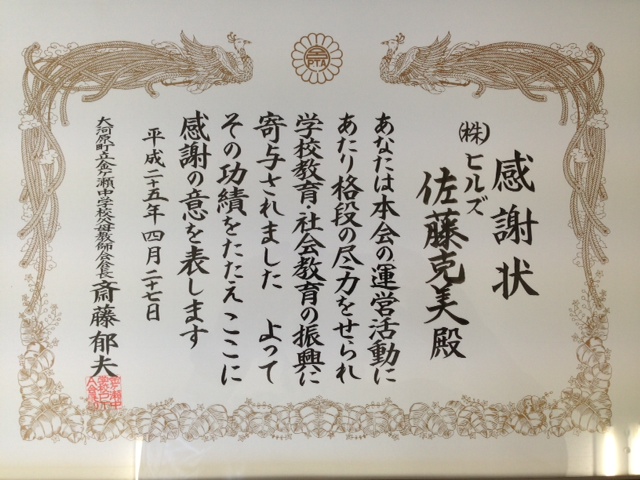 PTA
感謝状
㈱ヒルズ
佐藤克美殿
あなたは本会の運営活動に
あたり格段の尽力をせられ
学校教育・社会教育の振興に
寄与されました よって
その功績をたたえここに
感謝の意を表します
平成二十五年四月二十七日
大河原町立金ケ瀬中学校父母教師会会長 斎藤郁夫